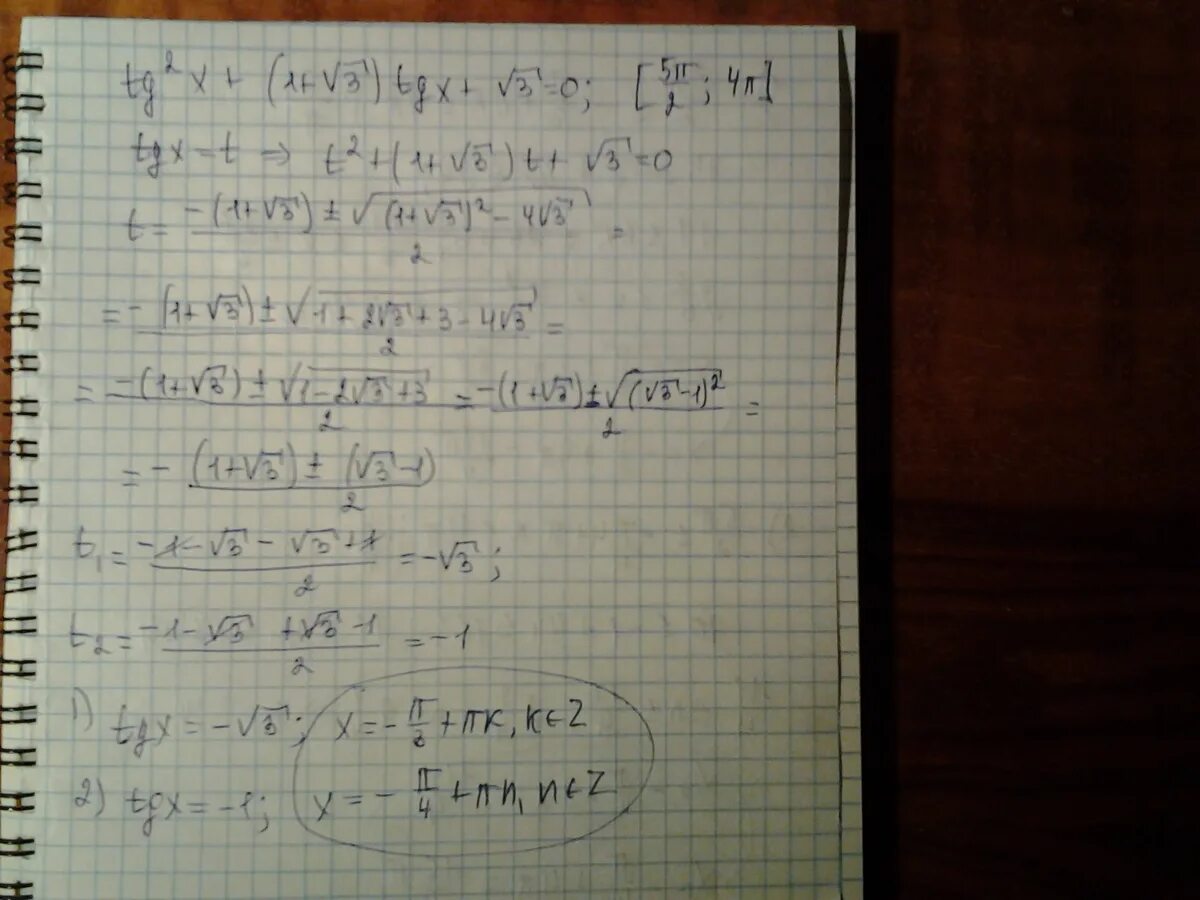 tg²x + (1+√3) tgx + √3 = 0; [5π/2; 4π]
tgx = t ⇒ t² + (1+√3)t + √3 = 0
t = (-(1+√3) ± √((1+√3)² - 4√3))/2 =
= (-(1+√3) ± √(1+2√3+3-4√3))/2 =
= (-(1+√3) ± √(1-2√3+3))/2 = (-(1+√3) ± √((√3-1)²))/2 =
= -((1+√3) ± (√3-1))/2
t₁ = (-1-√3-√3+1)/2 = -√3;
t₂ = (-1-√3+√3-1)/2 = -1
1) tgx = -√3; x = -π/3 + πk, k∈Z
2) tgx = -1; x = -π/4 + πn, n∈Z